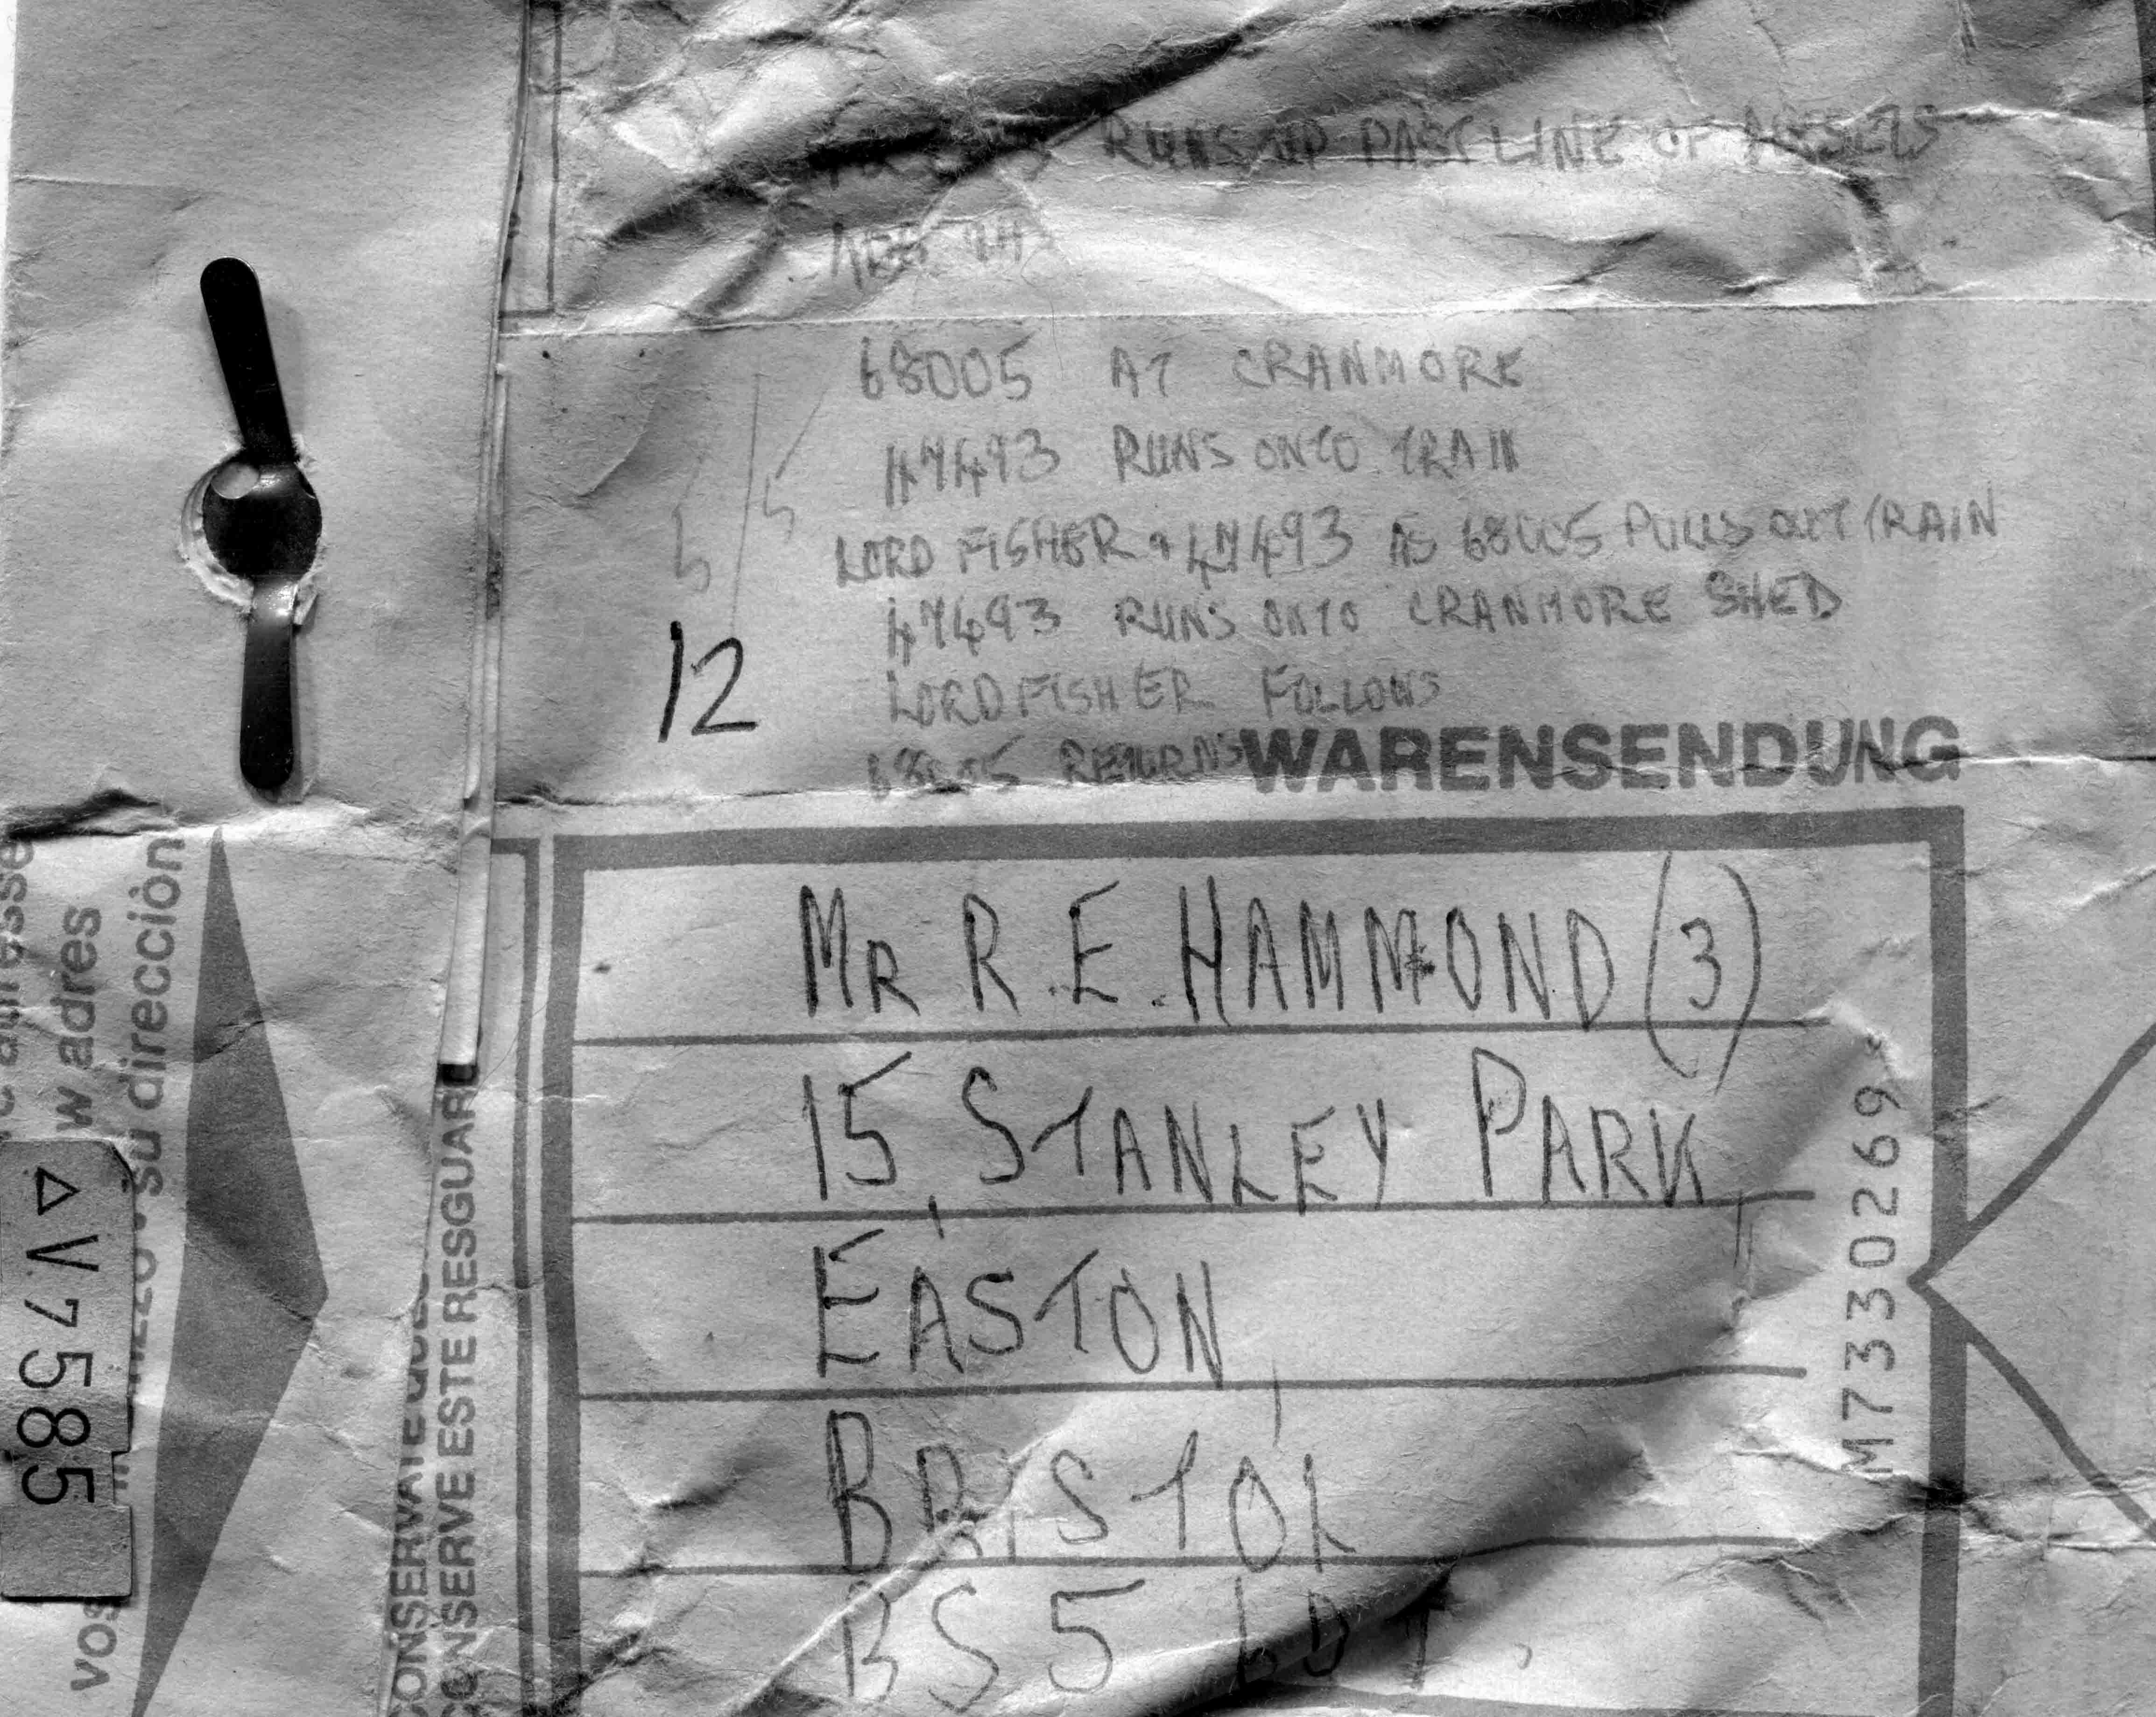 RUNS UP PAST LINE OF
68005 AT CRANMORE
47493 RUNS ONTO TRAIN
LORD FISHER & 47493 AS 68005 PULLS OUT TRAIN
47493 RUNS ONTO CRANMORE SHED
LORD FISHER FOLLOWS
68005 RETURNS
12
5/5
WARENSENDUNG
MR R.E. HAMMOND (3)
15, STANLEY PARK,
EASTON,
BRISTOL
BS5
M7330269
w adres
su dirección
vos
CONSERVATE
CONSERVE ESTE RESGUARD
ΔV7585